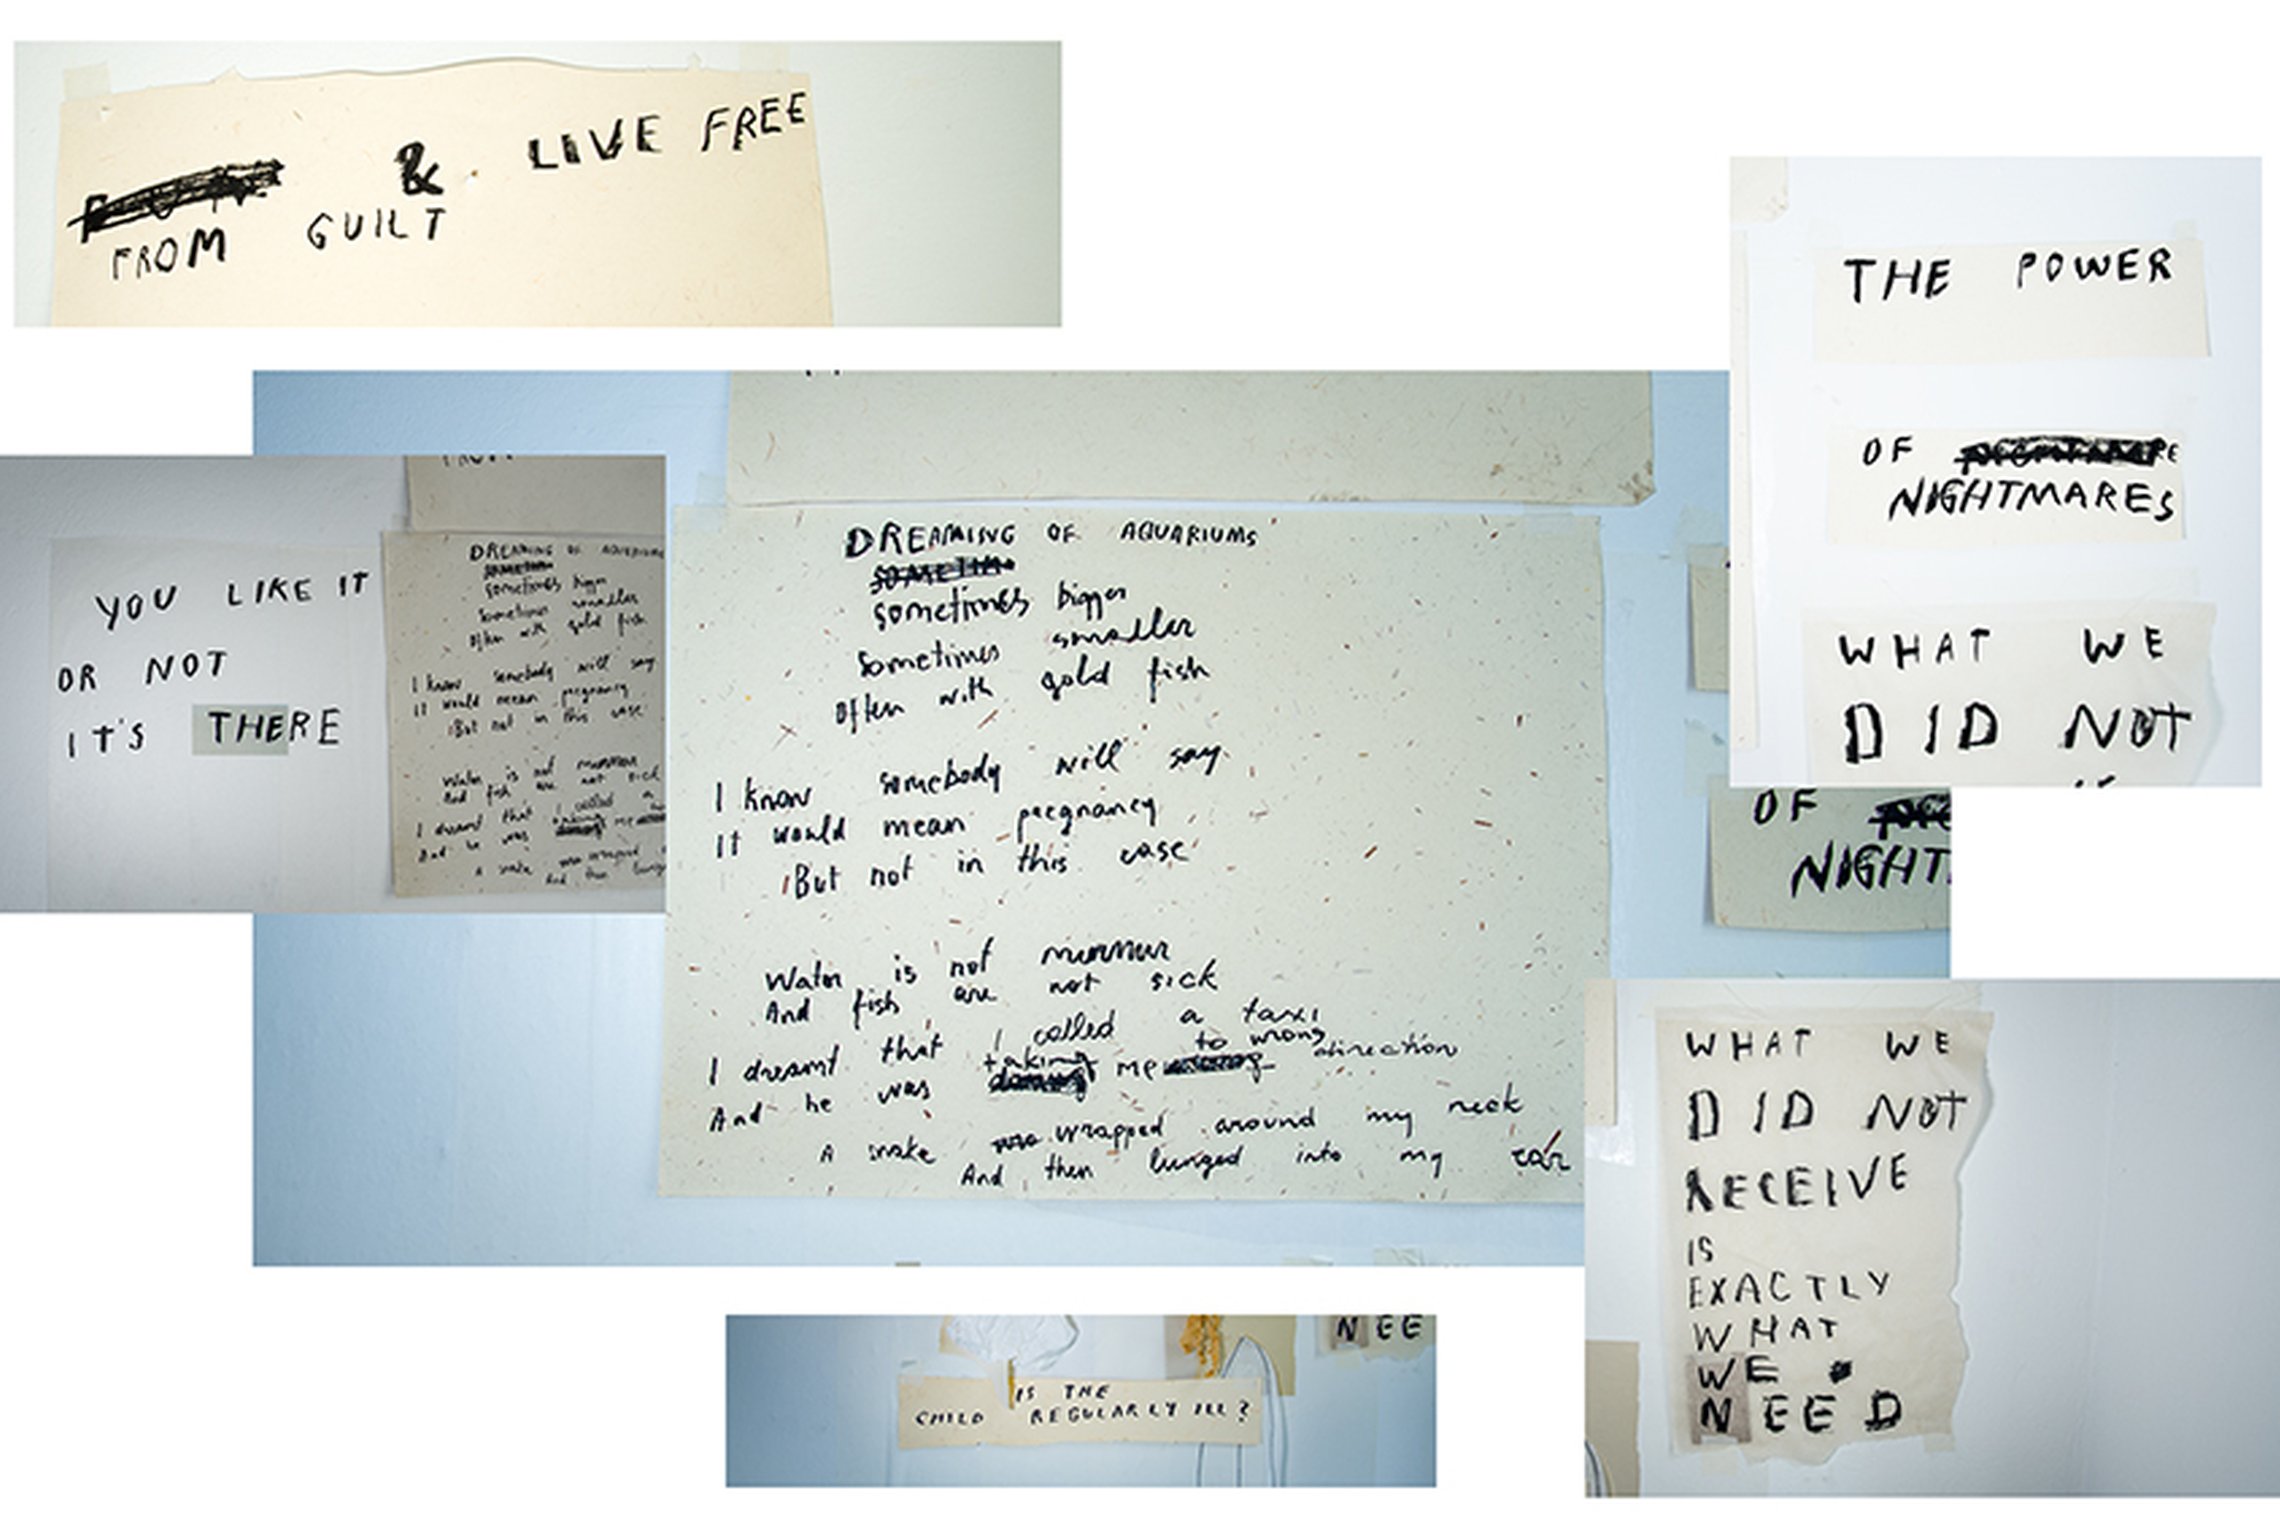 & LIVE FREE
FROM GUILT
THE POWER
OF NIGHTMARE
NIGHTMARES
WHAT WE
DID NOT
YOU LIKE IT
OR NOT
IT'S THERE
DREAMING OF AQUARIUMS
SOMETIM
sometimes bigger
Sometimes smaller
Often with gold fish
I know somebody will say
It would mean pregnancy
But not in this case
Water is not mur
And fish are not sick
I dreamt that I called a
And he was taking me
A snake wrapped
And then lunged
DREAMING OF AQUARIUMS
SOMETIM
sometimes bigger
Sometimes smaller
Often with gold fish
I know somebody will say
It would mean pregnancy
But not in this case
Water is not murmur
And fish are not sick
I dreamt that I called a taxi
And he was taking me to wrong direction
A snake wrapped around my neck
And then lunged into my ear
OF
NIGHT
WHAT WE
DID NOT
RECEIVE
IS
EXACTLY
WHAT
WE
NEED
NEE
IS THE
CHILD REGULARLY ILL?